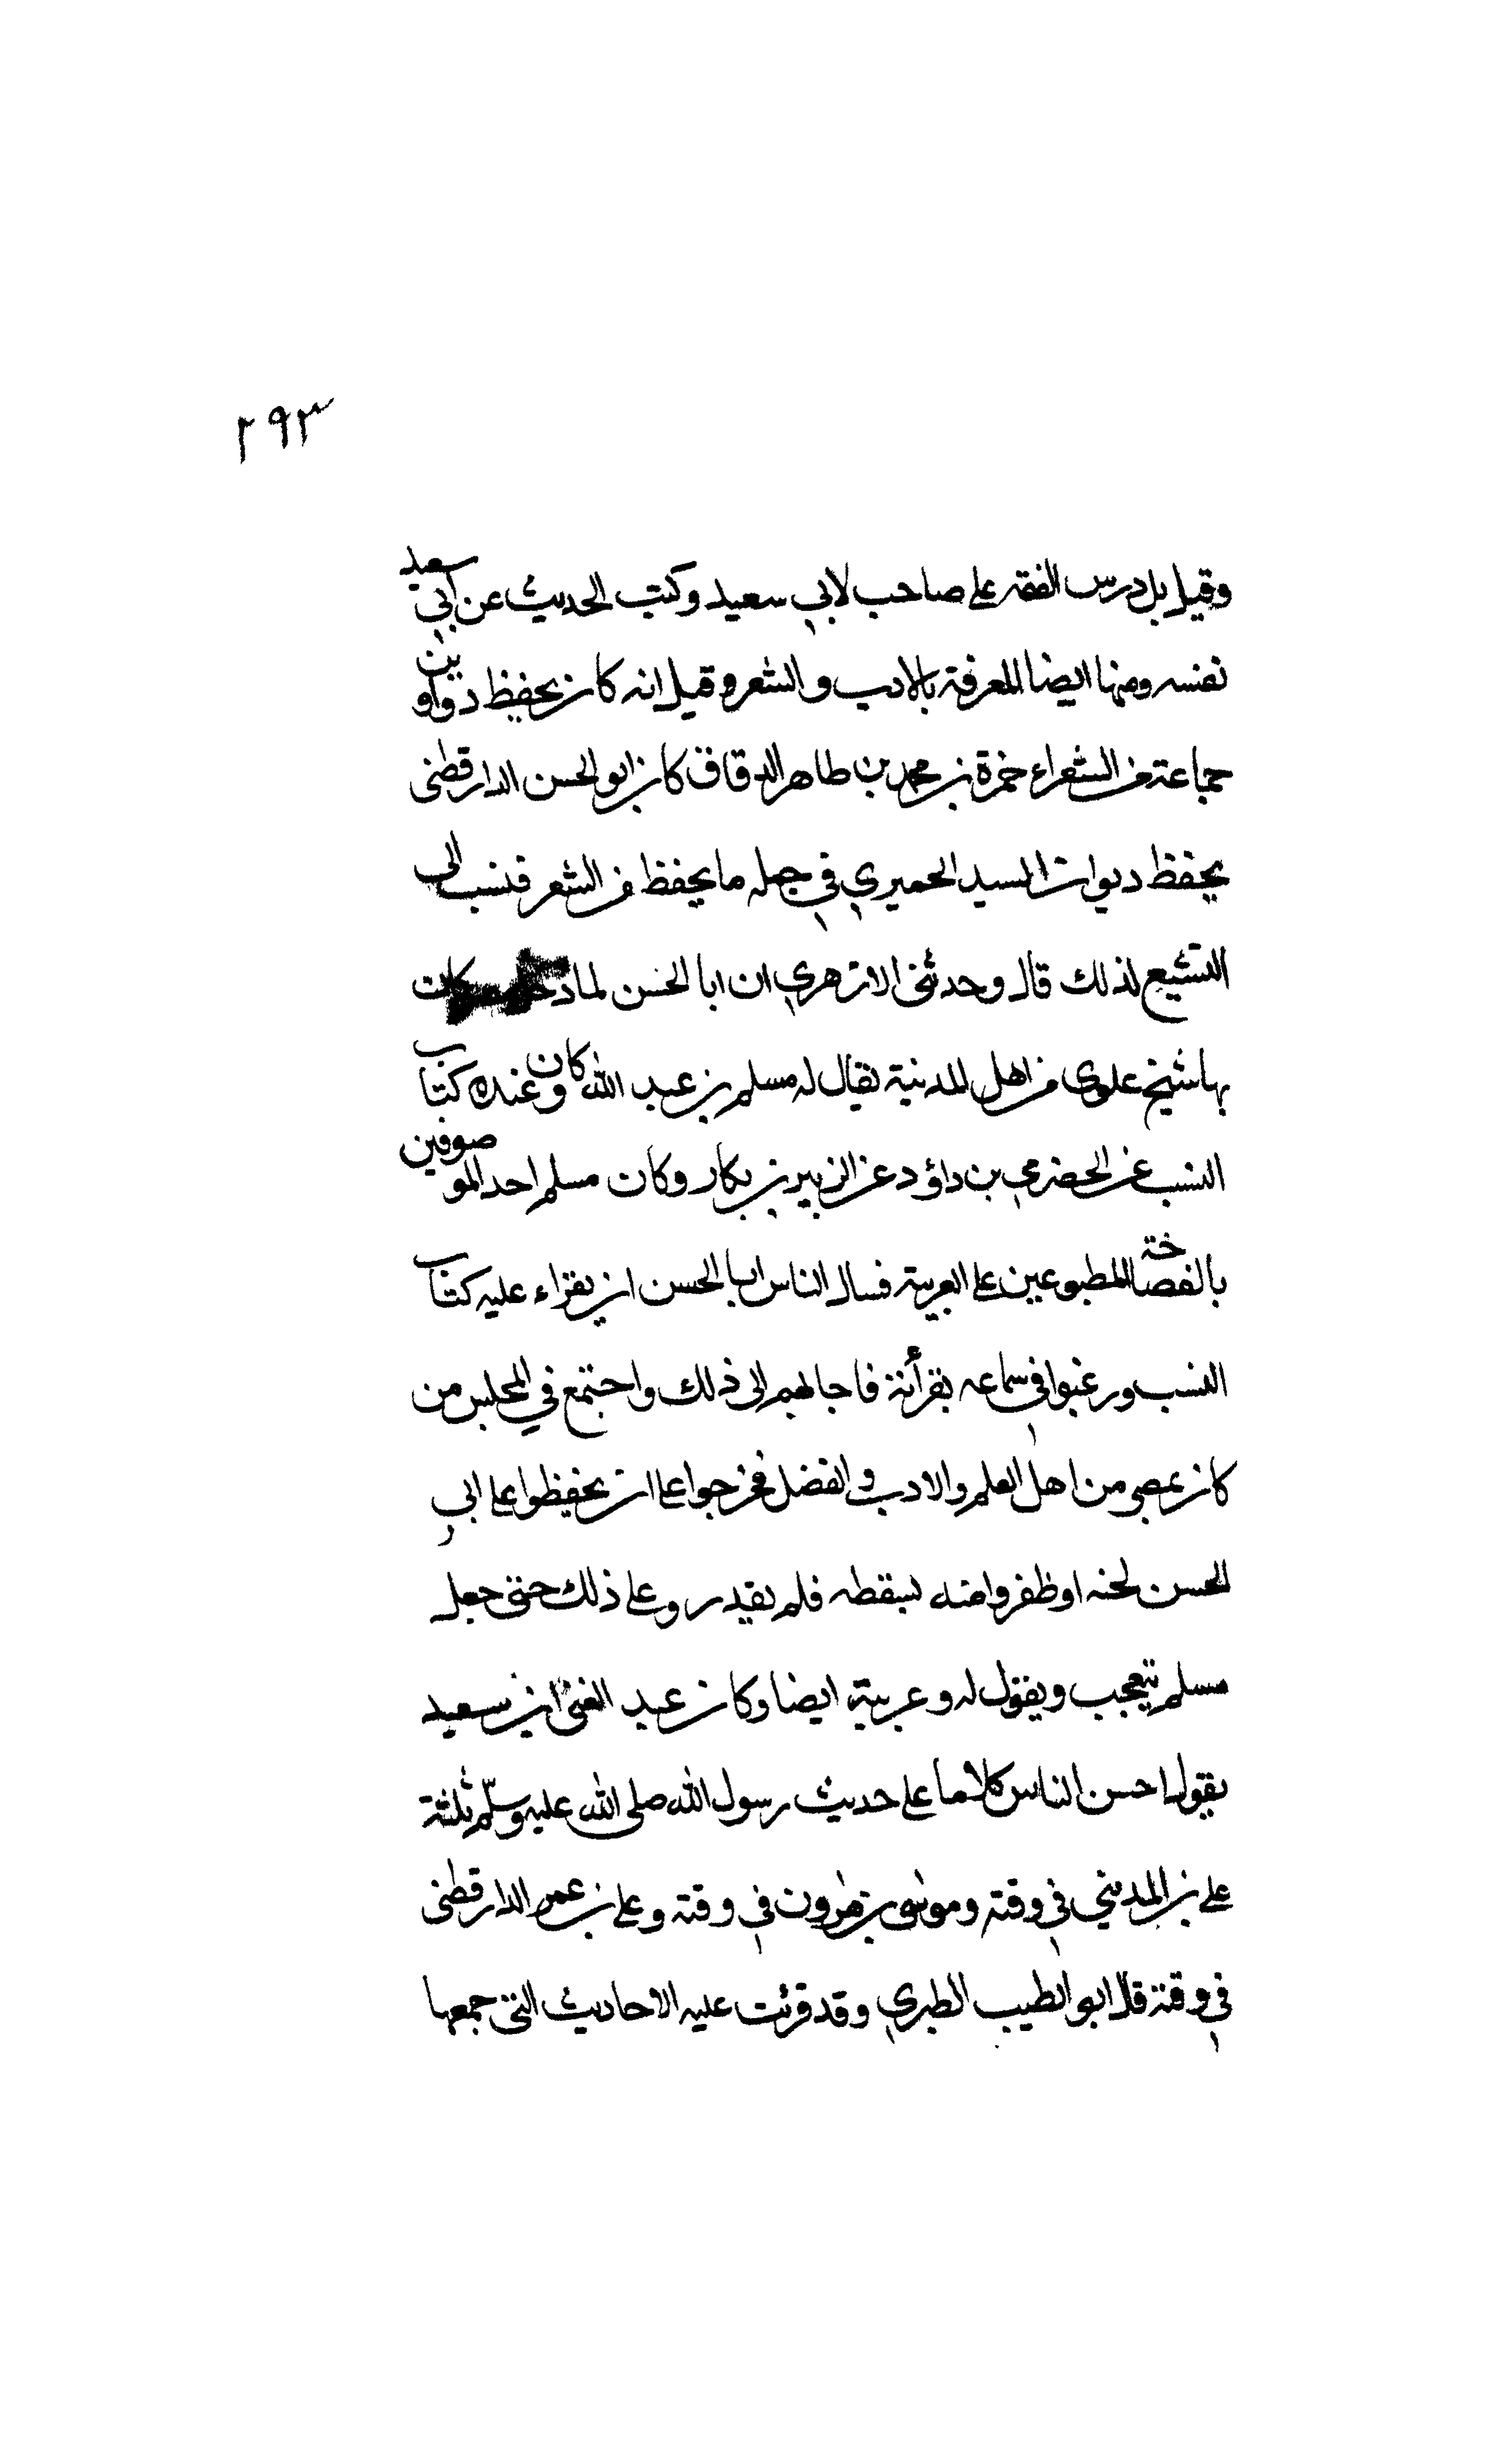 ٢٩٣
وقيل بل درس الفقه على صاحب لابي سعيد وكتب الحديث عن ابي سعيد
نفسه ومنها ايضا المعرفة بالادب والشعر وقيل انه كان يحفظ دواوين
جماعة من الشعراء حمزة بن محمد بن طاهر الدقاق كان ابو الحسن الدارقطنى
يحفظ ديوان السيد الحميري في جمله ما يحفظ من الشعر فنسب الى
التشيع لذلك قال وحدثنى الازهري ان ابا الحسن لما دخل كان
بها شيخ علوى من اهل المدينة يقال له مسلم بن عبد الله وكان عنده كتاب
النسب عن الحضرمي بن داؤد عن الزبير بن بكار وكان مسلم احد الموصوفين
بالفصاحة المطبوعين على العربية فسال الناس ابا الحسن ان يقراء عليه كتاب
النسب ورغبوا في سماعه بقرأته فاجابهم الى ذلك واجتمع في المجلس من
كان بمصر من اهل العلم والادب والفضل فخرجوا على ان يحفظوا على ابي
الحسن لحنه او ظفروا منه بسقطه فلم يقدروا على ذلك حتى جعل
مسلم يتعجب ويقول له وعربية ايضا وكان عبد الغنى ابن سعيد
يقول احسن الناس كلاما على حديث رسول الله صلى الله عليه وسلّم ثلثة
على بن المديني في وقته وموسى بن هرون في وقته وعلى بن عمر الدارقطنى
في وقته قال ابو الطيب الطبري وقد قرئت عليه الاحاديث التى جمعها